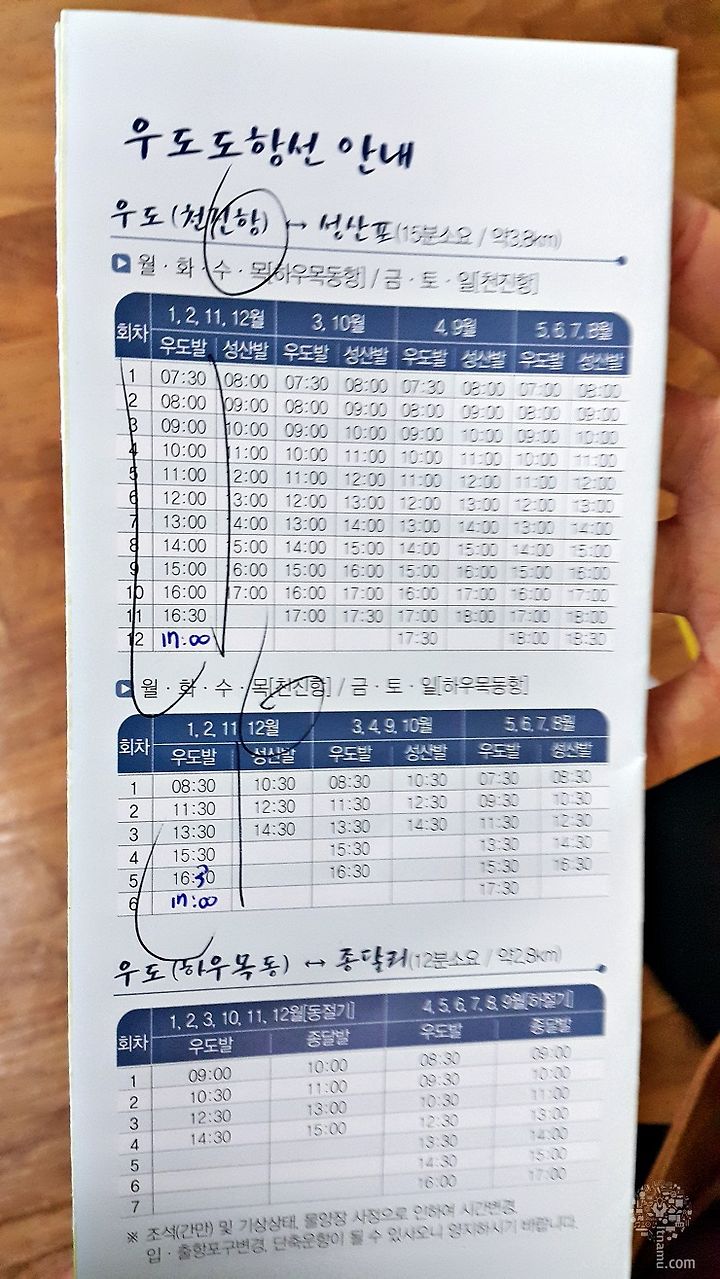 우도도항선 안내
우도(천진항) ↔ 성산포(15분소요 / 약3.8km)
▶ 월 · 화 · 수 · 목[하우목동항] / 금 · 토 · 일[천진항]
회차 1, 2, 11, 12월 3, 10월 4, 9월 5, 6, 7, 8월
우도발 성산발 우도발 성산발 우도발 성산발 우도발 성산발
1 07:30 08:00 07:30 08:00 07:30 08:00 07:00 08:00
2 08:00 09:00 08:00 09:00 08:00 09:00 08:00 09:00
3 09:00 10:00 09:00 10:00 09:00 10:00 09:00 10:00
4 10:00 11:00 10:00 11:00 10:00 11:00 10:00 11:00
5 11:00 12:00 11:00 12:00 11:00 12:00 11:00 12:00
6 12:00 13:00 12:00 13:00 12:00 13:00 12:00 13:00
7 13:00 14:00 13:00 14:00 13:00 14:00 13:00 14:00
8 14:00 15:00 14:00 15:00 14:00 15:00 14:00 15:00
9 15:00 16:00 15:00 16:00 15:00 16:00 15:00 16:00
10 16:00 17:00 16:00 17:00 16:00 17:00 16:00 17:00
11 16:30 17:00 17:30 17:00 18:00 17:00 18:00
12 17:00 17:30 18:00 18:30
▶ 월 · 화 · 수 · 목[천진항] / 금 · 토 · 일[하우목동항]
회차 1, 2, 11, 12월 3, 4, 9, 10월 5, 6, 7, 8월
우도발 성산발 우도발 성산발 우도발 성산발
1 08:30 10:30 08:30 10:30 07:30 08:30
2 11:30 12:30 11:30 12:30 09:30 10:30
3 13:30 14:30 13:30 14:30 11:30 12:30
4 15:30 15:30 13:30 14:30
5 16:30 16:30 15:30 16:30
6 17:00 17:30
우도(하우목동) ↔ 종달리(12분소요 / 약2.8km)
회차 1, 2, 3, 10, 11, 12월[동절기] 4, 5, 6, 7, 8, 9월[하절기]
우도발 종달발 우도발 종달발
1 09:00 10:00 08:30 09:00
2 10:30 11:00 09:30 10:00
3 12:30 13:00 10:30 11:00
4 14:30 15:00 12:30 13:00
5 13:30 14:00
6 14:30 15:00
7 16:00 17:00
※ 조석(간만) 및 기상상태, 물양장 사정으로 인하여 시간변경,
입 · 출항포구변경, 단축운항이 될 수 있사오니 양지하시기 바랍니다.
itnamu.com